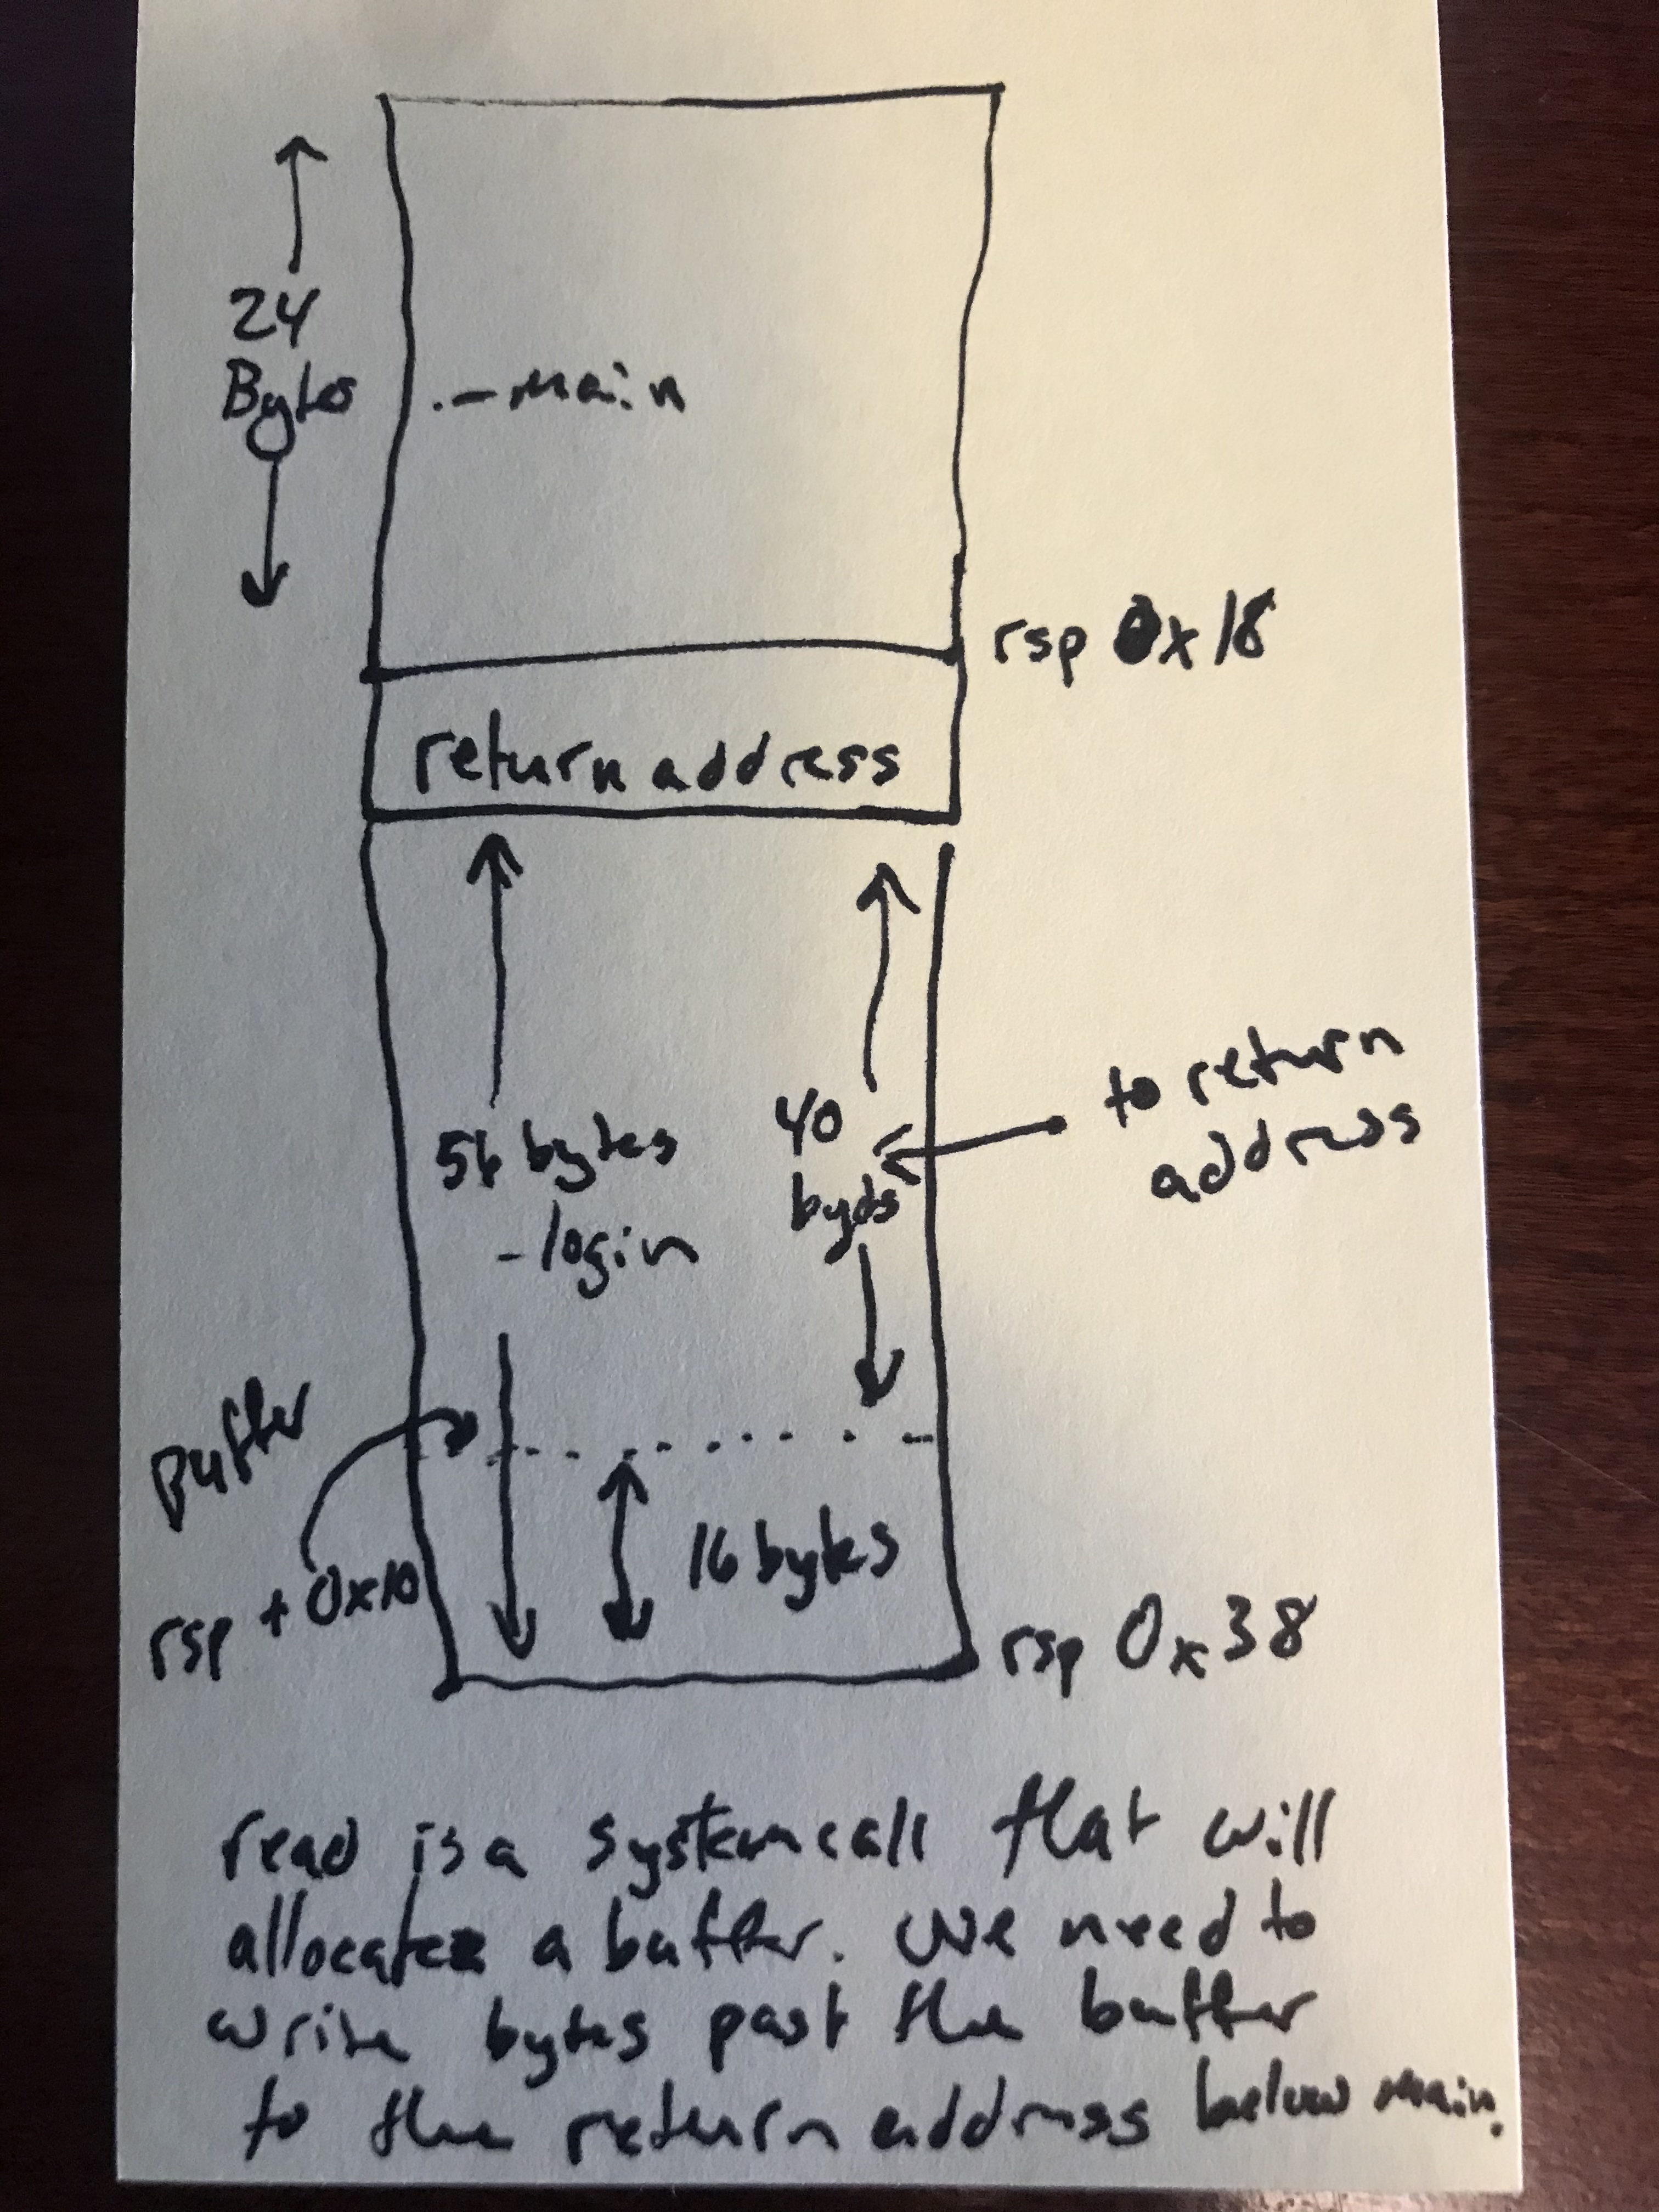 24
Bytes
- main
rsp 0x18
return address
to return
address
40
bytes
56 bytes
- login
Buffer
rsp + 0x10
16 bytes
rsp 0x38
read is a system call that will
allocate a buffer. We need to
write bytes past the buffer
to the return address below main.